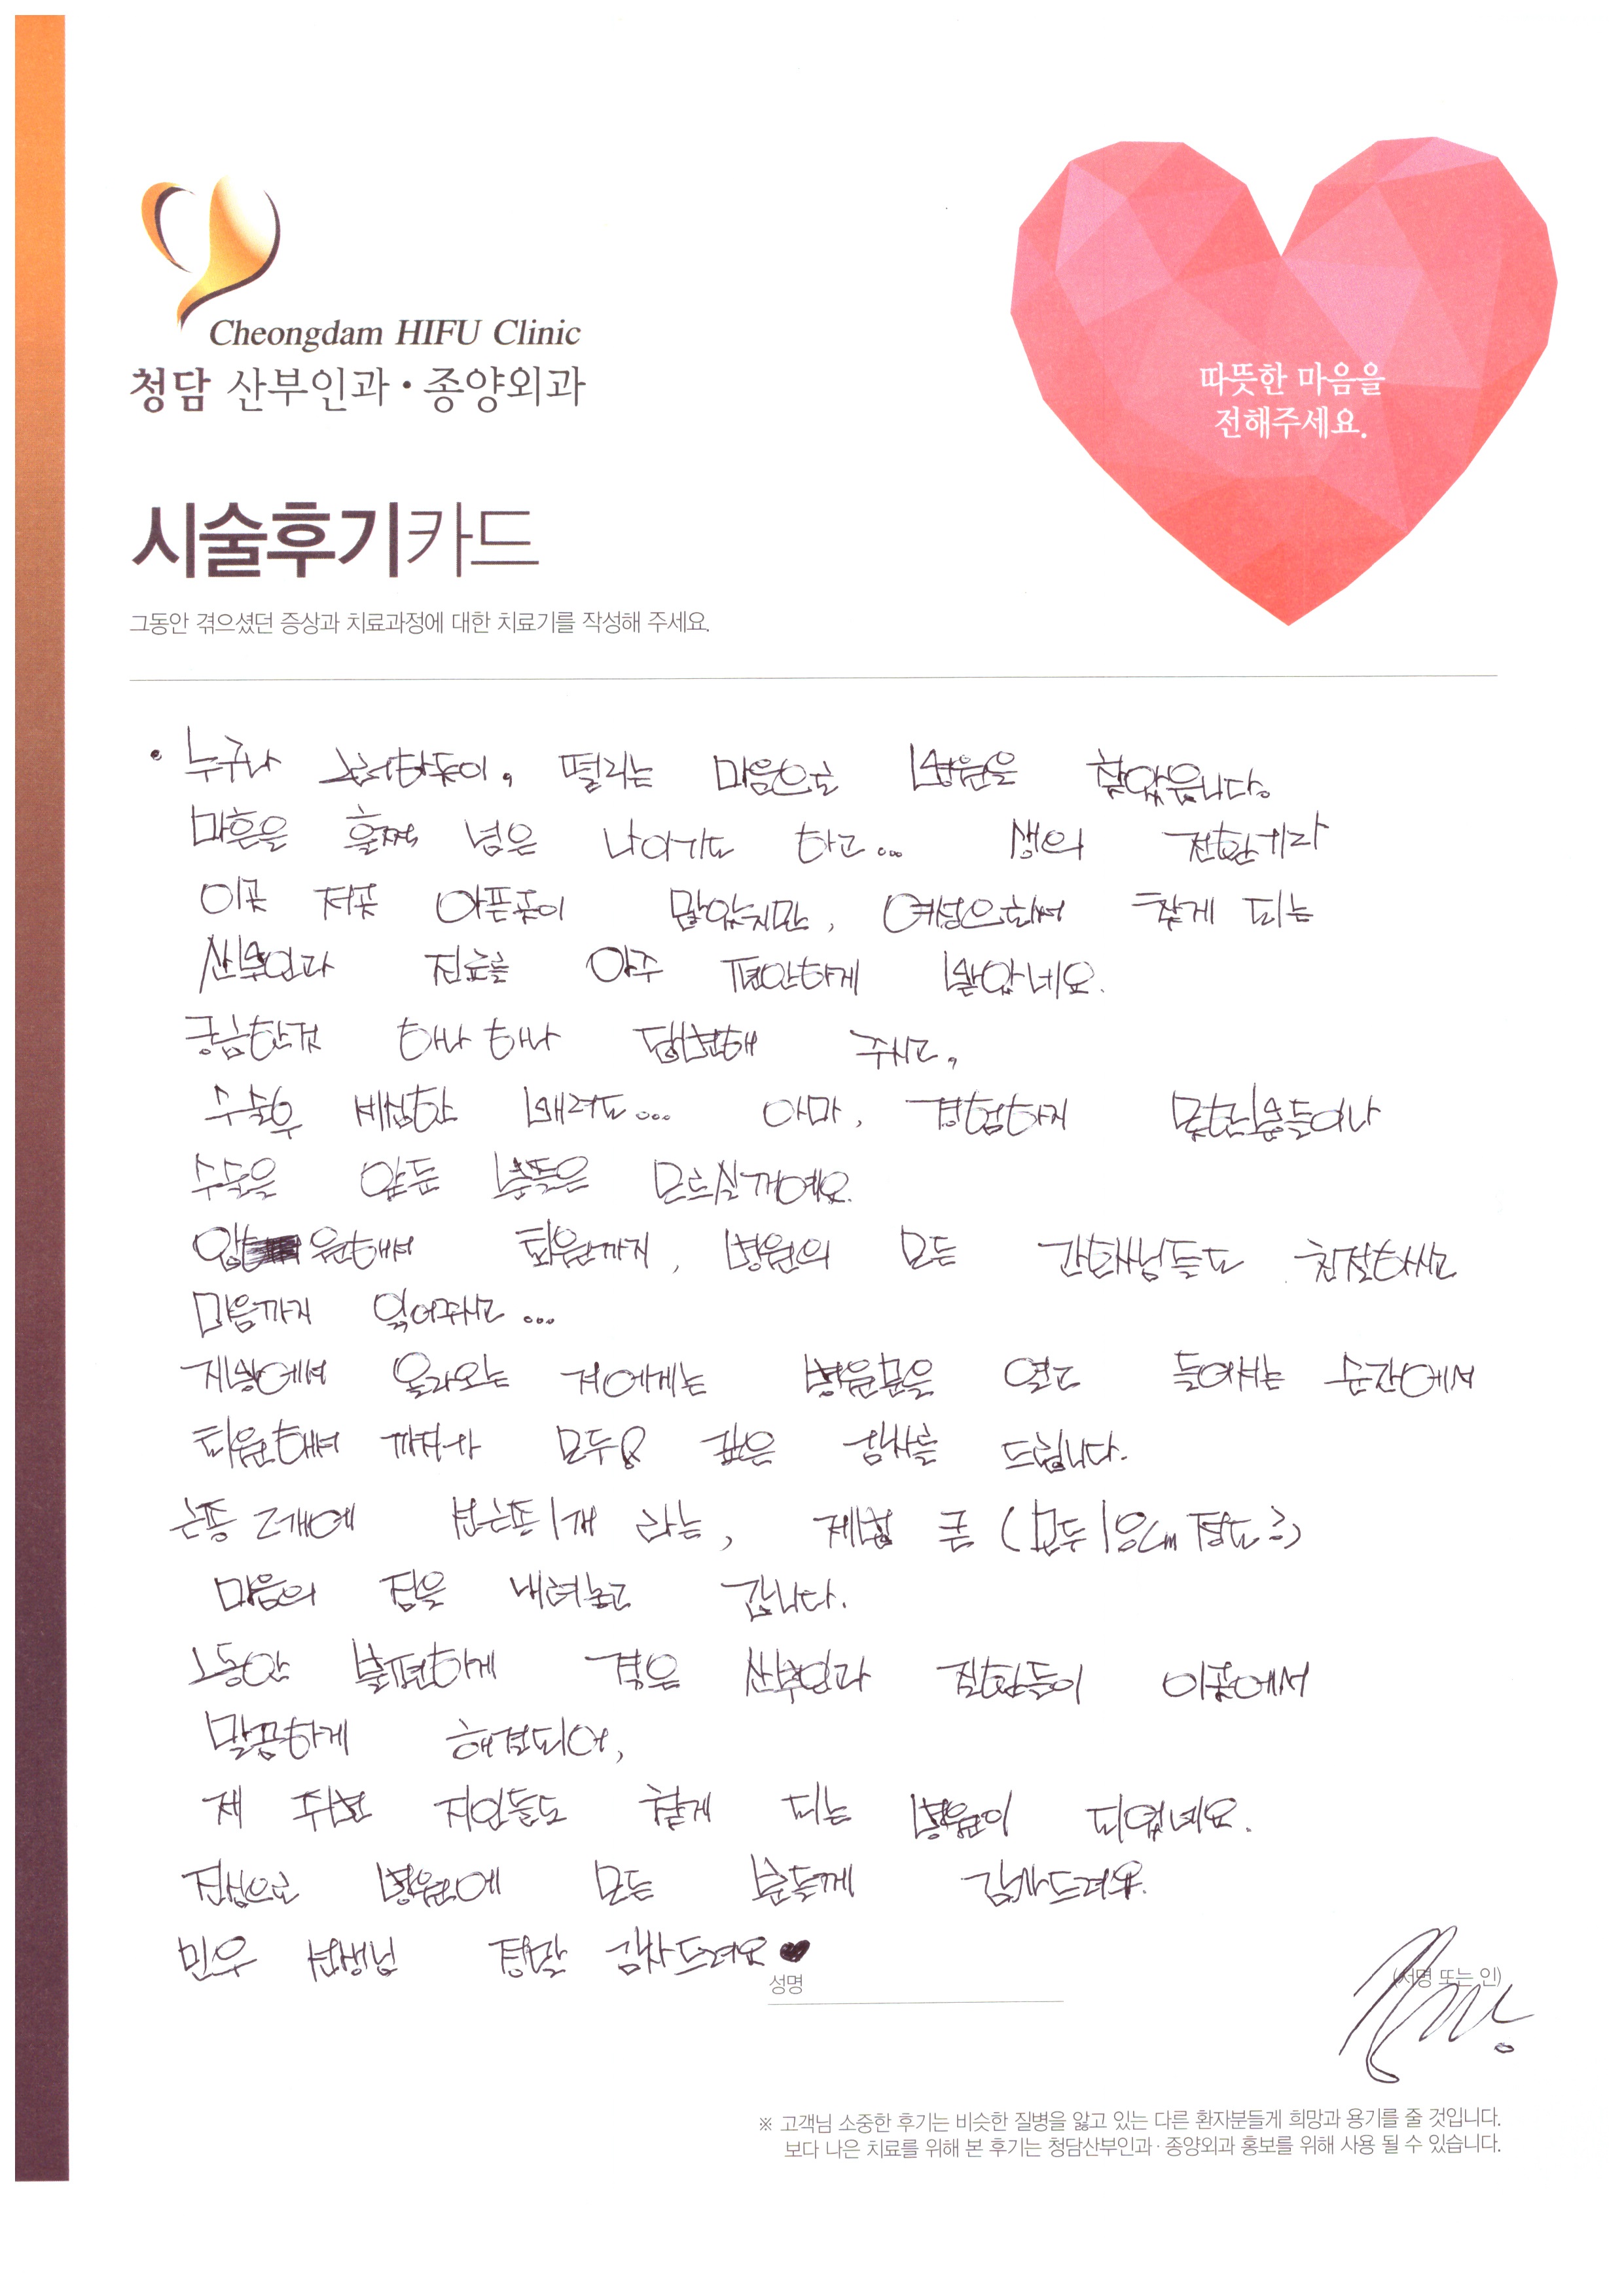 Cheongdam HIFU Clinic
청담 산부인과·종양외과
따뜻한 마음을
전해주세요.
시술후기카드
그동안 겪으셨던 증상과 치료과정에 대한 치료기를 작성해 주세요.
• 누구나 그러하듯이, 떨리는 마음으로 병원을 찾았읍니다.
마흔을 훌쩍 넘은 나이기도 하고... 생의 전환기라
이곳 저곳 아픈곳이 많았지만, 여성으로써 찾게 되는
산부인과 진료를 아주 편안하게 받았네요.
궁금한것 하나 하나 답변해 주시고,
수술후 세심한 배려도... 아마, 경험하지 못한분들이나
수술을 앞둔 분들은 모르실꺼예요.
입원해서 퇴원까지, 병원의 모든 간호사님들도 친절하시고
마음까지 읽어주시고...
지방에서 올라오는 저에게는 병원문을 열고 들어서는 순간에서
퇴원해서 까지가 모두 깊은 감사를 드립니다.
근종 2개에 선근종 1개 라는, 제법 큰 (모두 10cm 정도 ㅎ)
마음의 짐을 내려놓고 갑니다.
그동안 불편하게 겪은 산부인과 질환들이 이곳에서
말끔하게 해결되어,
제 주변 지인들도 찾게 되는 병원이 되었네요.
진심으로 병원에 모든 분들께 감사드려요.
민우 선생님 정말 감사드려요 ♥
성명
(서명 또는 인)
※ 고객님 소중한 후기는 비슷한 질병을 앓고 있는 다른 환자분들게 희망과 용기를 줄 것입니다.
보다 나은 치료를 위해 본 후기는 청담산부인과·종양외과 홍보를 위해 사용 될 수 있습니다.